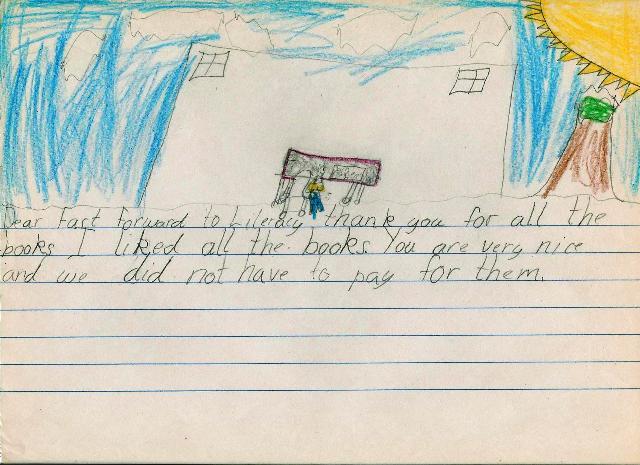 Dear Fast Forward to Literacy thank you for all the
books I liked all the. books. You are very nice
and we did not have to pay for them.